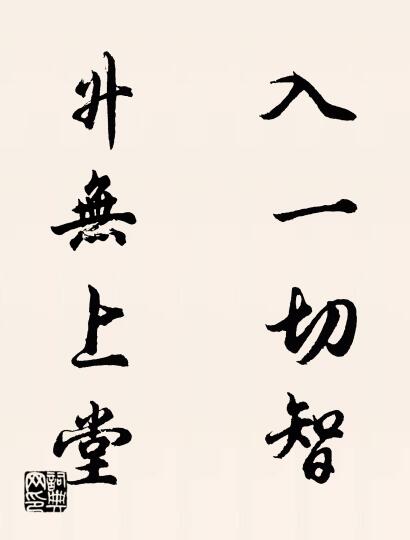 入一切智
升無上堂
詞典网印